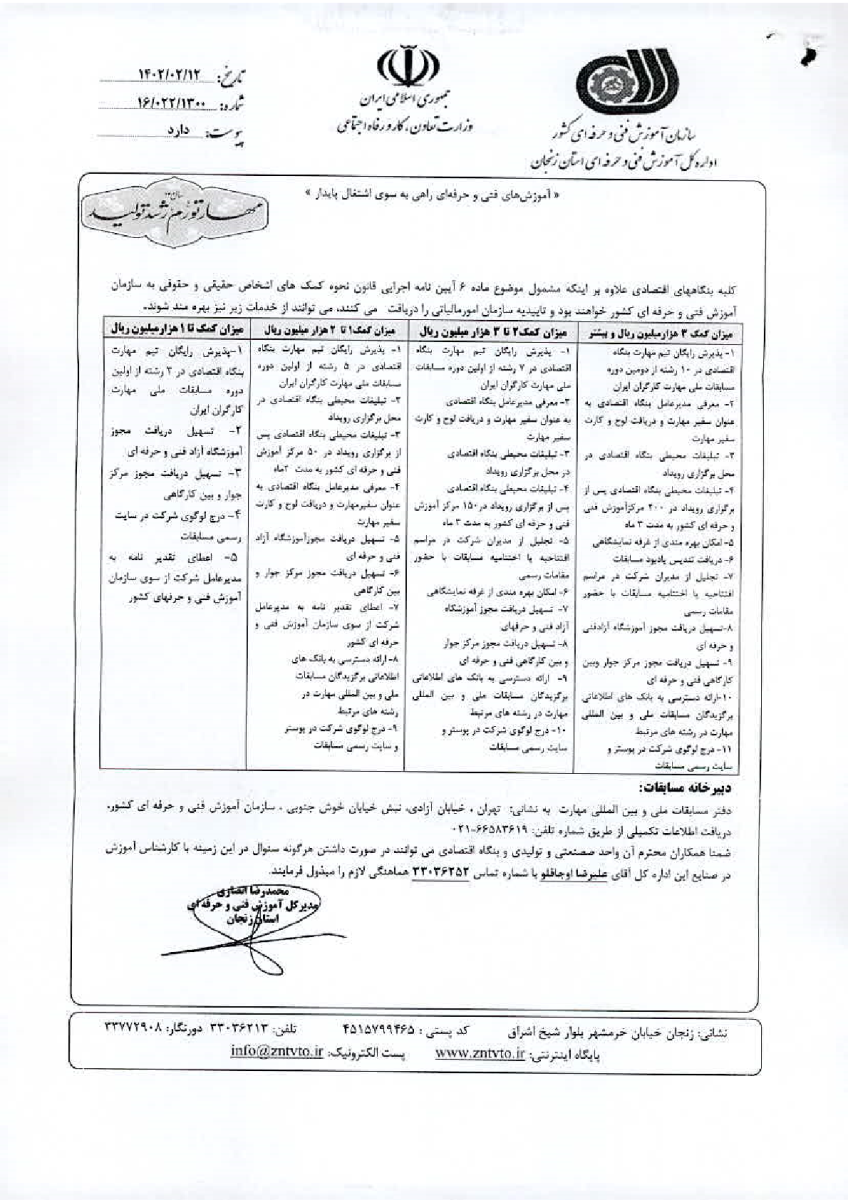 سازمان آموزش فنی و حرفه ای کشور
اداره کل آموزش فنی و حرفه ای استان زنجان
جمهوری اسلامی ایران
وزارت تعاون، کار و رفاه اجتماعی
تاریخ: ۱۴۰۲/۰۲/۱۲
شماره: ۱۶/۰۲۲/۱۳۰۰
پیوست: دارد
« آموزش‌های فنی و حرفه‌ای راهی به سوی اشتغال پایدار »
مهار تورم رشد تولید
کلیه بنگاههای اقتصادی علاوه بر اینکه مشمول موضوع ماده ۶ آیین نامه اجرایی قانون نحوه کمک های اشخاص حقیقی و حقوقی به سازمان
آموزش فنی و حرفه ای کشور خواهند بود و تاییدیه سازمان امورمالیاتی را دریافت می کنند، می توانند از خدمات زیر نیز بهره مند شوند.
میزان کمک ۳ هزارمیلیون ریال و بیشتر
۱- پذیرش رایگان تیم مهارت بنگاه
اقتصادی در ۱۰ رشته از دومین دوره
مسابقات ملی مهارت کارگران ایران
۲- معرفی مدیرعامل بنگاه اقتصادی به
عنوان سفیر مهارت و دریافت لوح و کارت
سفیر مهارت
۳- تبلیغات محیطی بنگاه اقتصادی در
محل برگزاری رویداد
۴- تبلیغات محیطی بنگاه اقتصادی پس از
برگزاری رویداد در ۲۰۰ مرکزآموزش فنی
و حرفه ای کشور به مدت ۳ ماه
۵- امکان بهره مندی از غرفه نمایشگاهی
۶- دریافت تندیس یادبود مسابقات
۷- تجلیل از مدیران شرکت در مراسم
افتتاحیه یا اختتامیه مسابقات با حضور
مقامات رسمی
۸-تسهیل دریافت مجوز آموزشگاه آزادفنی
و حرفه ای
۹- تسهیل دریافت مجوز مرکز جوار وبین
کارگاهی فنی و حرفه ای
۱۰-ارائه دسترسی به بانک های اطلاعاتی
برگزیدگان مسابقات ملی و بین المللی
مهارت در رشته های مرتبط
۱۱- درج لوگوی شرکت در پوستر و
سایت رسمی مسابقات
میزان کمک ۲ تا ۳ هزار میلیون ریال
۱- پذیرش رایگان تیم مهارت بنگاه
اقتصادی در ۷ رشته از اولین دوره مسابقات
ملی مهارت کارگران ایران
۲- معرفی مدیرعامل بنگاه اقتصادی
به عنوان سفیر مهارت و دریافت لوح و کارت
سفیر مهارت
۳- تبلیغات محیطی بنگاه اقتصادی
در محل برگزاری رویداد
۴- تبلیغات محیطی بنگاه اقتصادی
پس از برگزاری رویداد در۱۵۰ مرکز آموزش
فنی و حرفه ای کشور به مدت ۳ ماه
۵- تجلیل از مدیران شرکت در مراسم
افتتاحیه یا اختتامیه مسابقات با حضور
مقامات رسمی
۶- امکان بهره مندی از غرفه نمایشگاهی
۷- تسهیل دریافت مجوز آموزشگاه
آزاد فنی و حرفهای
۸- تسهیل دریافت مجوز مرکز جوار
و بین کارگاهی فنی و حرفه ای
۹- ارائه دسترسی به بانک های اطلاعاتی
برگزیدگان مسابقات ملی و بین المللی
مهارت در رشته های مرتبط
۱۰- درج لوگوی شرکت در پوستر و
سایت رسمی مسابقات
میزان کمک۱ تا ۲ هزار میلیون ریال
۱- پذیرش رایگان تیم مهارت بنگاه
اقتصادی در ۵ رشته از اولین دوره
مسابقات ملی مهارت کارگران ایران
۲- تبلیغات محیطی بنگاه اقتصادی در
محل برگزاری رویداد
۳- تبلیغات محیطی بنگاه اقتصادی پس
از برگزاری رویداد در ۵۰ مرکز آموزش
فنی و حرفه ای کشور به مدت ۲ماه
۴- معرفی مدیرعامل بنگاه اقتصادی به
عنوان سفیرمهارت و دریافت لوح و کارت
سفیر مهارت
۵- تسهیل دریافت مجوزآموزشگاه آزاد
فنی و حرفه ای
۶- تسهیل دریافت مجوز مرکز جوار و
بین کارگاهی
۷- اعطای تقدیر نامه به مدیرعامل
شرکت از سوی سازمان آموزش فنی و
حرفه ای کشور
۸- ارائه دسترسی به بانک های
اطلاعاتی برگزیدگان مسابقات
ملی و بین المللی مهارت در
رشته های مرتبط
۹- درج لوگوی شرکت در پوستر
و سایت رسمی مسابقات
میزان کمک تا ۱ هزارمیلیون ریال
۱-پذیرش رایگان تیم مهارت
بنگاه اقتصادی در ۲ رشته از اولین
دوره مسابقات ملی مهارت
کارگران ایران
۲- تسهیل دریافت مجوز
آموزشگاه آزاد فنی و حرفه ای
۳- تسهیل دریافت مجوز مرکز
جوار و بین کارگاهی
۴- درج لوگوی شرکت در سایت
رسمی مسابقات
۵- اعطای تقدیر نامه به
مدیرعامل شرکت از سوی سازمان
آموزش فنی و حرفهای کشور
دبیرخانه مسابقات:
دفتر مسابقات ملی و بین المللی مهارت به نشانی: تهران ، خیابان آزادی، نبش خیابان خوش جنوبی ، سازمان آموزش فنی و حرفه ای کشور.
دریافت اطلاعات تکمیلی از طریق شماره تلفن: ۶۶۵۸۳۶۱۹-۰۲۱
ضمنا همکاران محترم آن واحد صنعتی و تولیدی و بنگاه اقتصادی می توانند در صورت داشتن هرگونه سئوال در این زمینه با کارشناس آموزش
در صنایع این اداره کل آقای علیرضا اوجاقلو با شماره تماس ۳۳۰۳۶۲۵۲ هماهنگی لازم را مبذول فرمایند.
محمدرضا انصاری
مدیرکل آموزش فنی و حرفه ای
استان زنجان
نشانی: زنجان خیابان خرمشهر بلوار شیخ اشراق کد پستی : ۴۵۱۵۷۹۹۴۶۵ تلفن: ۳۳۰۳۶۲۱۳ دورنگار: ۳۳۷۷۲۹۰۸
پایگاه اینترنتی: www.zntvto.ir پست الکترونیک: info@zntvto.ir